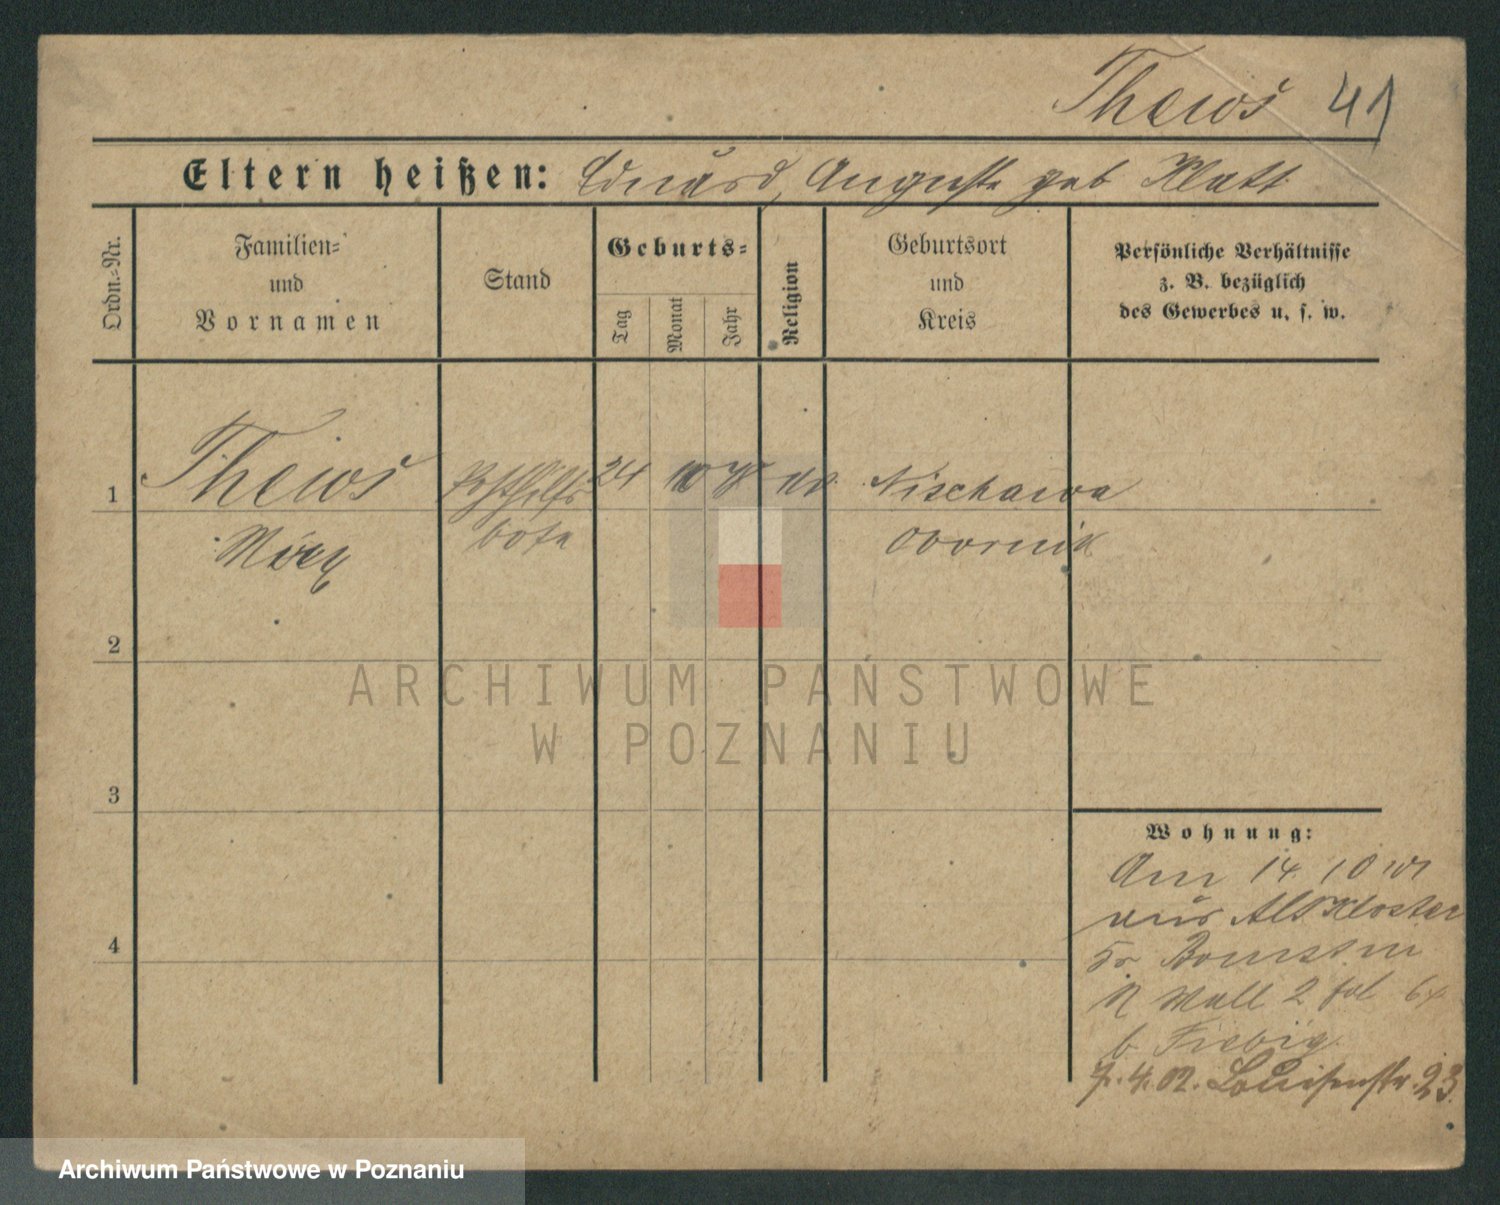 Thews 41
Eltern heißen: Eduard, Auguste geb Klatt
Ordn.-Nr.
Familien-
und
Vornamen
Stand
Geburts-
Tag
Monat
Jahr
Religion
Geburtsort
und
Kreis
Persönliche Verhältnisse
z. B. bezüglich
des Gewerbes u. s. w.
1 Thews Posthilfs 24 10 78 Nischawa
bote Obornik
2
ARCHIWUM PAŃSTWOWE
W POZNANIU
3
Wohnung:
Am 14. 10 01
aus Alt Kloster
Kr Bomst
4
N Wall 2 fol 64
b. Fiebig
7.4.02. Louisenstr. 23.
Archiwum Państwowe w Poznaniu